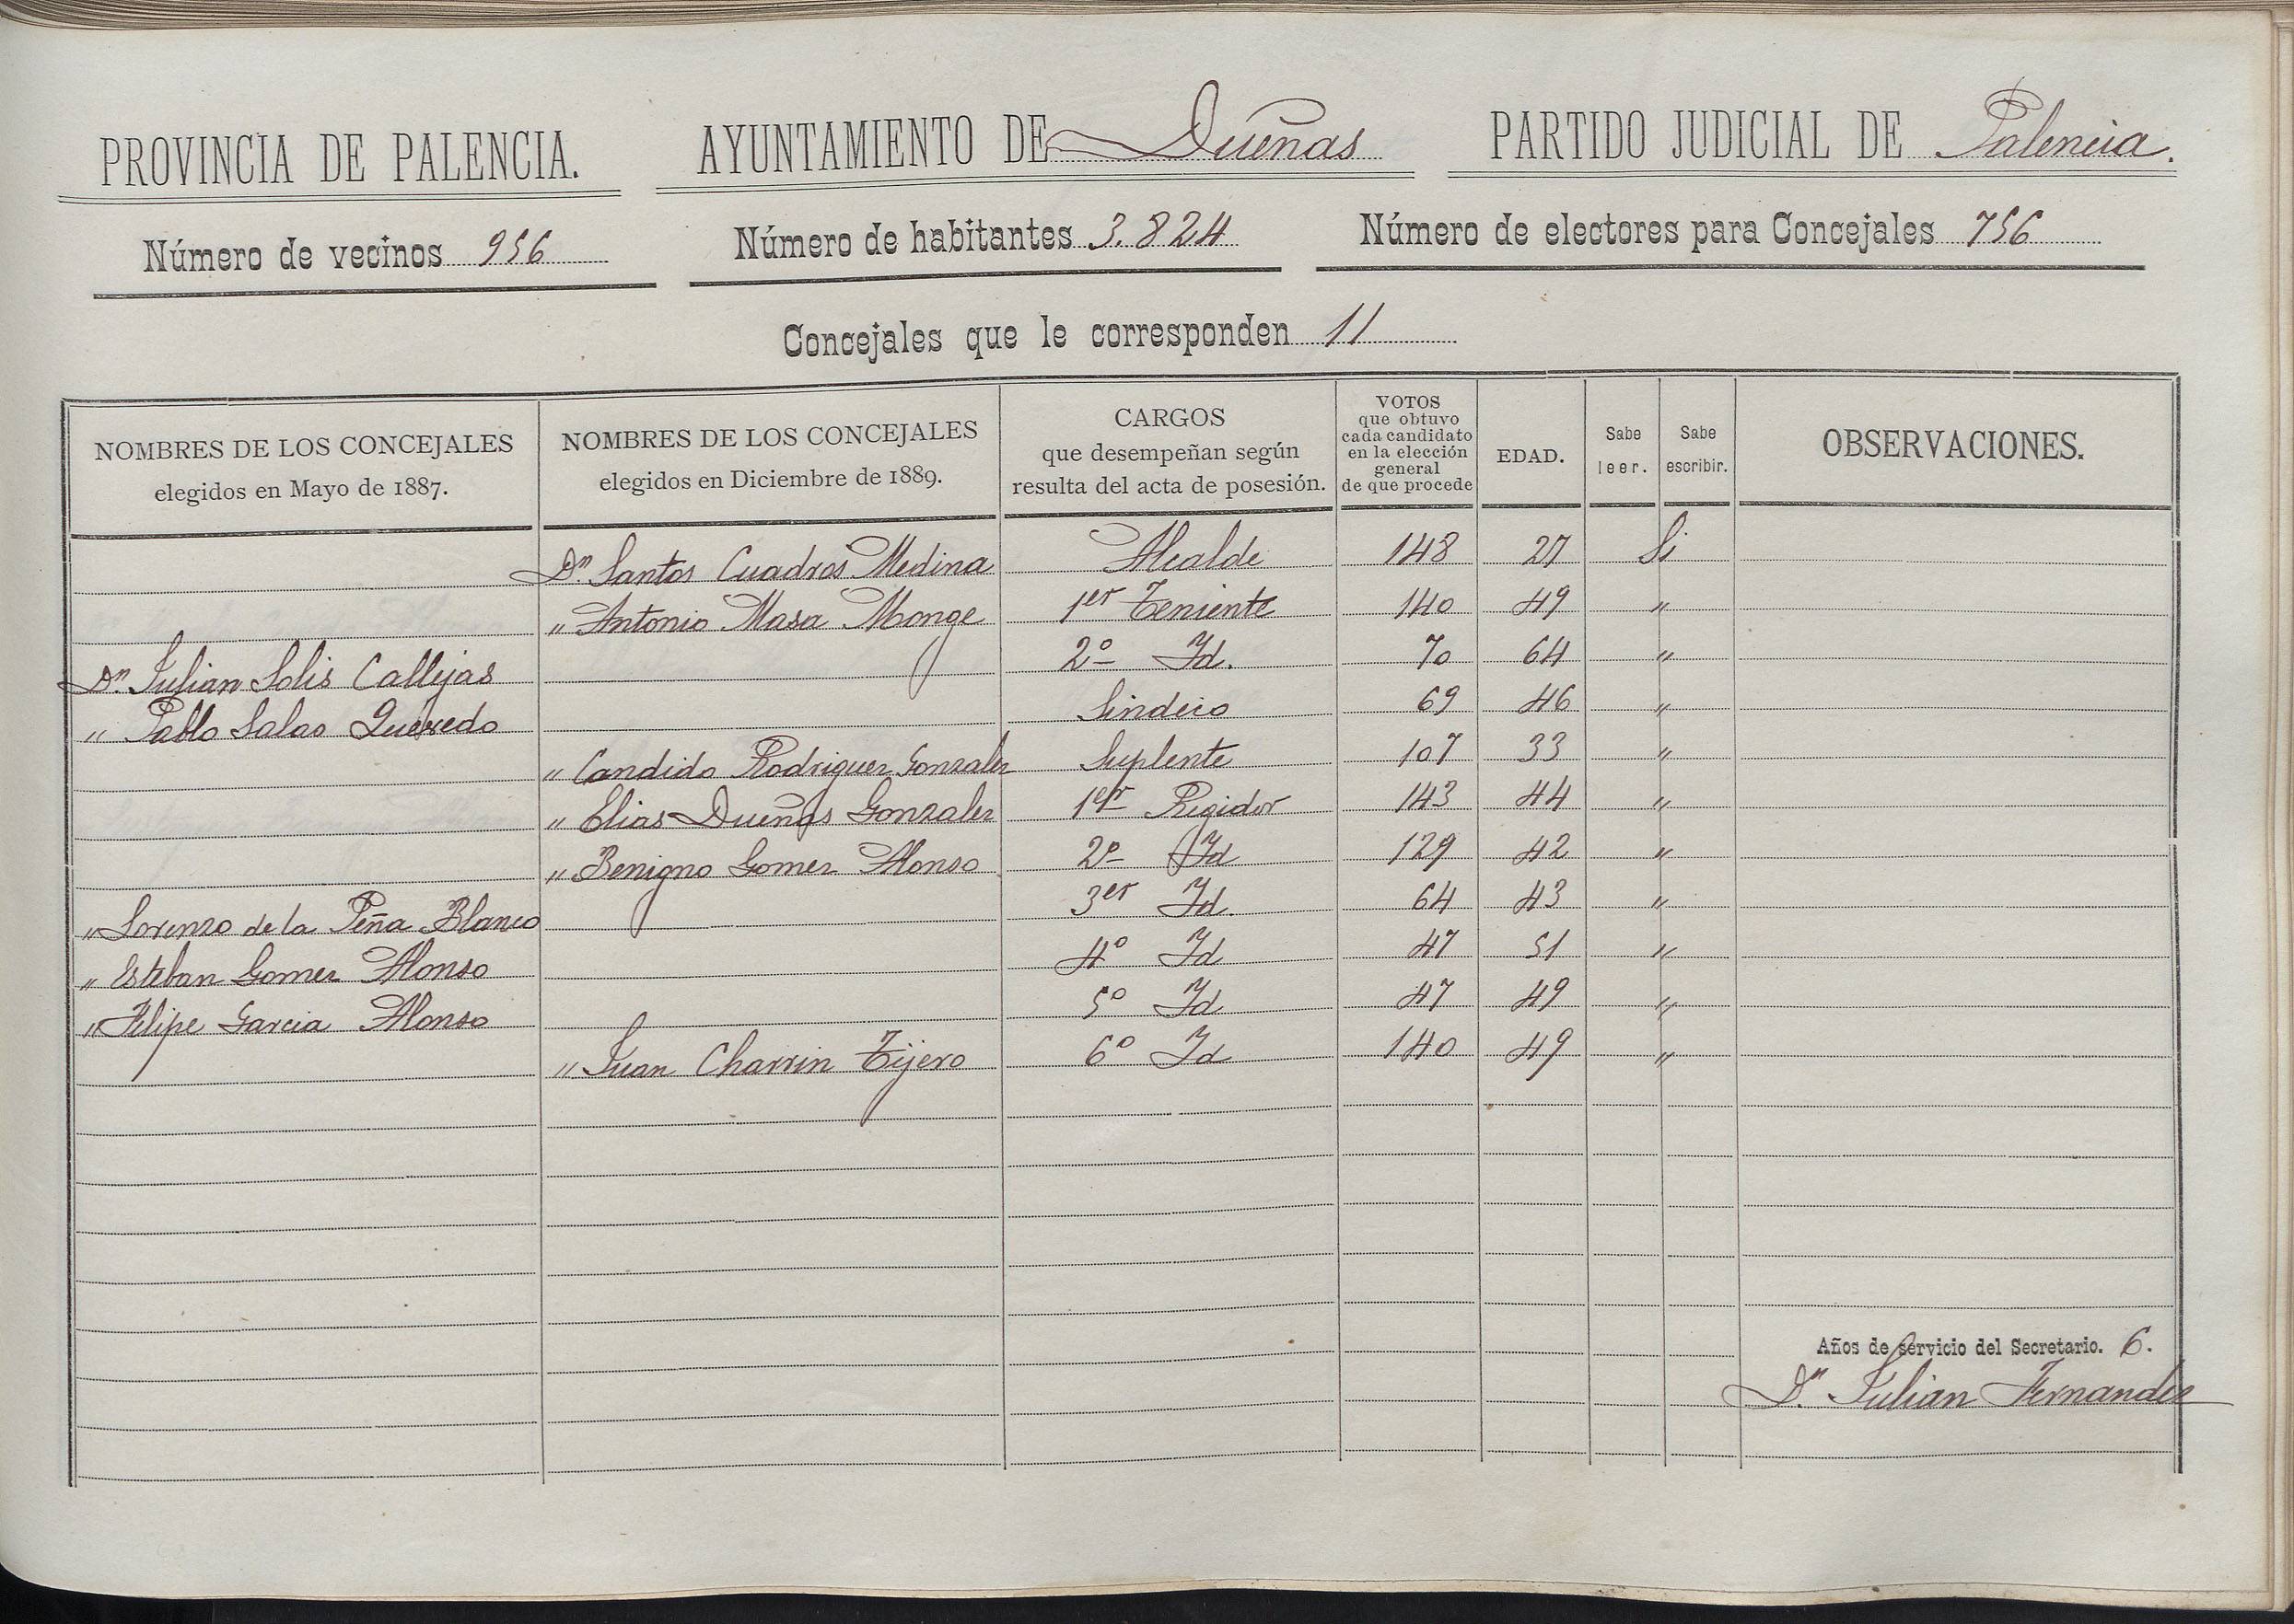 PROVINCIA DE PALENCIA. AYUNTAMIENTO DE Dueñas PARTIDO JUDICIAL DE Palencia.
Número de vecinos 956 Número de habitantes 3.824 Número de electores para Concejales 756
Concejales que le corresponden 11
NOMBRES DE LOS CONCEJALES elegidos en Mayo de 1887. NOMBRES DE LOS CONCEJALES elegidos en Diciembre de 1889. CARGOS que desempeñan según resulta del acta de posesión. VOTOS que obtuvo cada candidato en la elección general de que procede EDAD. Sabe leer. Sabe escribir. OBSERVACIONES.
Dn. Santos Cuadros Medina Alcalde 148 27 Si
" Antonio Masa Monge 1er Teniente 140 49 "
Dn. Julian Solis Callejas 2º Id. 70 64 "
" Pablo Salas Quevedo Sindico 69 46 "
" Candido Rodriguez Gonzalez Suplente 107 33 "
" Elias Dueñas Gonzalez 1er Regidor 143 44 "
" Benigno Gomez Alonso 2º Id 129 42 "
" Lorenzo de la Peña Blanco 3er Id. 64 43 "
" Esteban Gomez Alonso 4º Id 47 51 "
" Felipe Garcia Alonso 5º Id 47 49 "
" Juan Charrin Tijero 6º Id 140 49 "
Años de servicio del Secretario. 6.
Dn. Julian Fernandez